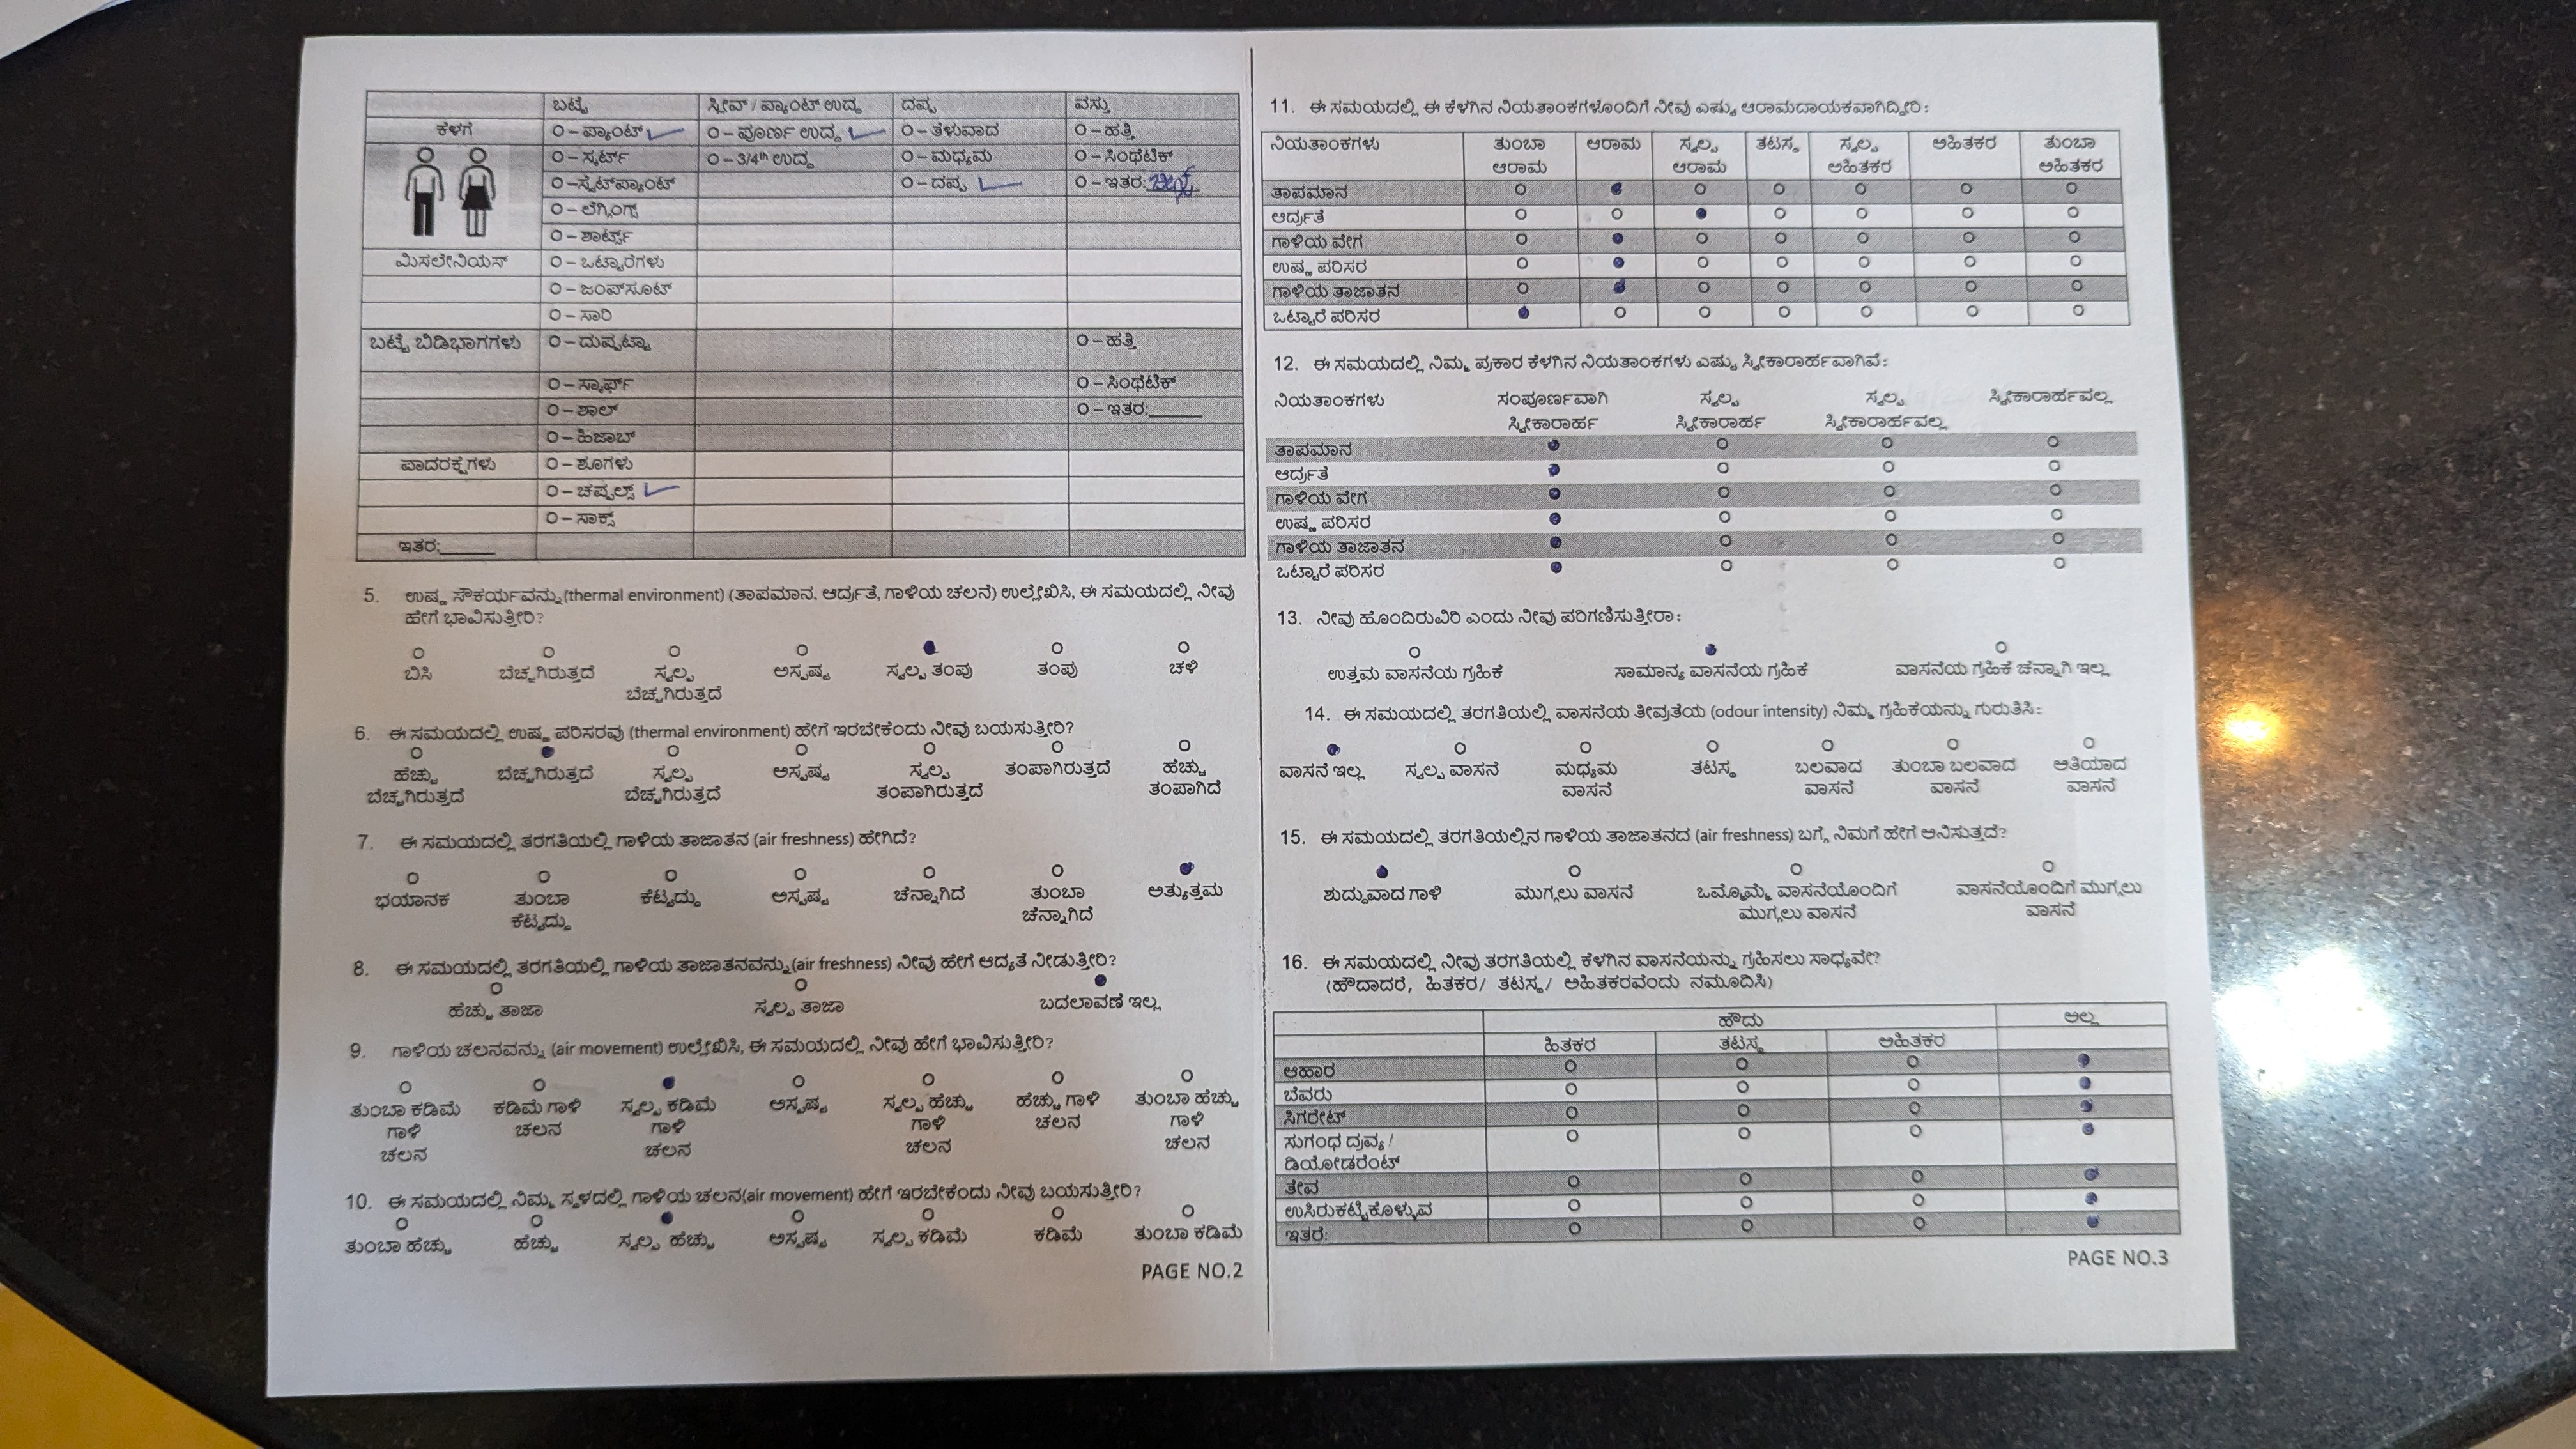 ಬಟ್ಟೆ ಸ್ಲೀವ್ / ಪ್ಯಾಂಟ್ ಉದ್ದ ದಪ್ಪ ವಸ್ತು
ಕೆಳಗೆ O – ಪ್ಯಾಂಟ್ O – ಪೂರ್ಣ ಉದ್ದ O – ತೆಳುವಾದ O – ಹತ್ತಿ
O – ಸ್ಕರ್ಟ್ O – 3/4th ಉದ್ದ O – ಮಧ್ಯಮ O – ಸಿಂಥೆಟಿಕ್
O –ಸ್ವೆಟ್‌ಪ್ಯಾಂಟ್ O – ದಪ್ಪ O – ಇತರ:
O – ಲೆಗ್ಗಿಂಗ್ಸ್
O – ಶಾರ್ಟ್ಸ್
ಮಿಸಲೇನಿಯಸ್ O – ಒಟ್ಟಾರೆಗಳು
O – ಜಂಪ್‌ಸೂಟ್
O – ಸಾರಿ
ಬಟ್ಟೆ ಬಿಡಿಭಾಗಗಳು O – ದುಪ್ಪಟ್ಟಾ O – ಹತ್ತಿ
O – ಸ್ಕಾರ್ಫ್ O – ಸಿಂಥೆಟಿಕ್
O – ಶಾಲ್ O – ಇತರ:______
O – ಹಿಜಾಬ್
ಪಾದರಕ್ಷೆಗಳು O – ಶೂಗಳು
O – ಚಪ್ಪಲ್ಸ್
O – ಸಾಕ್ಸ್
ಇತರ:______
5. ಉಷ್ಣ ಸೌಕರ್ಯವನ್ನು (thermal environment) (ತಾಪಮಾನ, ಆರ್ದ್ರತೆ, ಗಾಳಿಯ ಚಲನೆ) ಉಲ್ಲೇಖಿಸಿ, ಈ ಸಮಯದಲ್ಲಿ ನೀವು
ಹೇಗೆ ಭಾವಿಸುತ್ತೀರಿ?
ಬಿಸಿ ಬೆಚ್ಚಗಿರುತ್ತದೆ ಸ್ವಲ್ಪ ಅಸ್ಪಷ್ಟ ಸ್ವಲ್ಪ ತಂಪು ತಂಪು ಚಳಿ
ಬೆಚ್ಚಗಿರುತ್ತದೆ
6. ಈ ಸಮಯದಲ್ಲಿ ಉಷ್ಣ ಪರಿಸರವು (thermal environment) ಹೇಗೆ ಇರಬೇಕೆಂದು ನೀವು ಬಯಸುತ್ತೀರಿ?
ಹೆಚ್ಚು ಬೆಚ್ಚಗಿರುತ್ತದೆ ಸ್ವಲ್ಪ ಅಸ್ಪಷ್ಟ ಸ್ವಲ್ಪ ತಂಪಾಗಿರುತ್ತದೆ ಹೆಚ್ಚು
ಬೆಚ್ಚಗಿರುತ್ತದೆ ಬೆಚ್ಚಗಿರುತ್ತದೆ ತಂಪಾಗಿರುತ್ತದೆ ತಂಪಾಗಿದೆ
7. ಈ ಸಮಯದಲ್ಲಿ ತರಗತಿಯಲ್ಲಿ ಗಾಳಿಯ ತಾಜಾತನ (air freshness) ಹೇಗಿದೆ?
ಭಯಾನಕ ತುಂಬಾ ಕೆಟ್ಟದ್ದು ಅಸ್ಪಷ್ಟ ಚೆನ್ನಾಗಿದೆ ತುಂಬಾ ಅತ್ಯುತ್ತಮ
ಕೆಟ್ಟದ್ದು ಚೆನ್ನಾಗಿದೆ
8. ಈ ಸಮಯದಲ್ಲಿ ತರಗತಿಯಲ್ಲಿ ಗಾಳಿಯ ತಾಜಾತನವನ್ನು (air freshness) ನೀವು ಹೇಗೆ ಆದ್ಯತೆ ನೀಡುತ್ತೀರಿ?
ಹೆಚ್ಚು ತಾಜಾ ಸ್ವಲ್ಪ ತಾಜಾ ಬದಲಾವಣೆ ಇಲ್ಲ
9. ಗಾಳಿಯ ಚಲನವನ್ನು (air movement) ಉಲ್ಲೇಖಿಸಿ, ಈ ಸಮಯದಲ್ಲಿ ನೀವು ಹೇಗೆ ಭಾವಿಸುತ್ತೀರಿ?
ತುಂಬಾ ಕಡಿಮೆ ಕಡಿಮೆ ಗಾಳಿ ಸ್ವಲ್ಪ ಕಡಿಮೆ ಅಸ್ಪಷ್ಟ ಸ್ವಲ್ಪ ಹೆಚ್ಚು ಹೆಚ್ಚು ಗಾಳಿ ತುಂಬಾ ಹೆಚ್ಚು
ಗಾಳಿ ಚಲನ ಗಾಳಿ ಗಾಳಿ ಚಲನ ಗಾಳಿ
ಚಲನ ಚಲನ ಚಲನ ಚಲನ
10. ಈ ಸಮಯದಲ್ಲಿ ನಿಮ್ಮ ಸ್ಥಳದಲ್ಲಿ ಗಾಳಿಯ ಚಲನ(air movement) ಹೇಗೆ ಇರಬೇಕೆಂದು ನೀವು ಬಯಸುತ್ತೀರಿ?
ತುಂಬಾ ಹೆಚ್ಚು ಹೆಚ್ಚು ಸ್ವಲ್ಪ ಹೆಚ್ಚು ಅಸ್ಪಷ್ಟ ಸ್ವಲ್ಪ ಕಡಿಮೆ ಕಡಿಮೆ ತುಂಬಾ ಕಡಿಮೆ
PAGE NO.2
11. ಈ ಸಮಯದಲ್ಲಿ ಈ ಕೆಳಗಿನ ನಿಯತಾಂಕಗಳೊಂದಿಗೆ ನೀವು ಎಷ್ಟು ಆರಾಮದಾಯಕವಾಗಿದ್ದೀರಿ:
ನಿಯತಾಂಕಗಳು ತುಂಬಾ ಆರಾಮ ಸ್ವಲ್ಪ ತಟಸ್ಥ ಸ್ವಲ್ಪ ಅಹಿತಕರ ತುಂಬಾ
ಆರಾಮ ಆರಾಮ ಅಹಿತಕರ ಅಹಿತಕರ
ತಾಪಮಾನ
ಆರ್ದ್ರತೆ
ಗಾಳಿಯ ವೇಗ
ಉಷ್ಣ ಪರಿಸರ
ಗಾಳಿಯ ತಾಜಾತನ
ಒಟ್ಟಾರೆ ಪರಿಸರ
12. ಈ ಸಮಯದಲ್ಲಿ ನಿಮ್ಮ ಪ್ರಕಾರ ಕೆಳಗಿನ ನಿಯತಾಂಕಗಳು ಎಷ್ಟು ಸ್ವೀಕಾರಾರ್ಹವಾಗಿವೆ:
ನಿಯತಾಂಕಗಳು ಸಂಪೂರ್ಣವಾಗಿ ಸ್ವಲ್ಪ ಸ್ವಲ್ಪ ಸ್ವೀಕಾರಾರ್ಹವಲ್ಲ
ಸ್ವೀಕಾರಾರ್ಹ ಸ್ವೀಕಾರಾರ್ಹ ಸ್ವೀಕಾರಾರ್ಹವಲ್ಲ
ತಾಪಮಾನ
ಆರ್ದ್ರತೆ
ಗಾಳಿಯ ವೇಗ
ಉಷ್ಣ ಪರಿಸರ
ಗಾಳಿಯ ತಾಜಾತನ
ಒಟ್ಟಾರೆ ಪರಿಸರ
13. ನೀವು ಹೊಂದಿರುವಿರಿ ಎಂದು ನೀವು ಪರಿಗಣಿಸುತ್ತೀರಾ:
ಉತ್ತಮ ವಾಸನೆಯ ಗ್ರಹಿಕೆ ಸಾಮಾನ್ಯ ವಾಸನೆಯ ಗ್ರಹಿಕೆ ವಾಸನೆಯ ಗ್ರಹಿಕೆ ಚೆನ್ನಾಗಿ ಇಲ್ಲ
14. ಈ ಸಮಯದಲ್ಲಿ ತರಗತಿಯಲ್ಲಿ ವಾಸನೆಯ ತೀವ್ರತೆಯ (odour intensity) ನಿಮ್ಮ ಗ್ರಹಿಕೆಯನ್ನು ಗುರುತಿಸಿ:
ವಾಸನೆ ಇಲ್ಲ ಸ್ವಲ್ಪ ವಾಸನೆ ಮಧ್ಯಮ ತಟಸ್ಥ ಬಲವಾದ ತುಂಬಾ ಬಲವಾದ ಅತಿಯಾದ
ವಾಸನೆ ವಾಸನೆ ವಾಸನೆ ವಾಸನೆ
15. ಈ ಸಮಯದಲ್ಲಿ ತರಗತಿಯಲ್ಲಿನ ಗಾಳಿಯ ತಾಜಾತನದ (air freshness) ಬಗ್ಗೆ ನಿಮಗೆ ಹೇಗೆ ಅನಿಸುತ್ತದೆ?
ಶುದ್ಧುವಾದ ಗಾಳಿ ಮುಗ್ಗಲು ವಾಸನೆ ಒಮ್ಮೊಮ್ಮೆ ವಾಸನೆಯೊಂದಿಗೆ ವಾಸನೆಯೊಂದಿಗೆ ಮುಗ್ಗಲು
ಮುಗ್ಗಲು ವಾಸನೆ ವಾಸನೆ
16. ಈ ಸಮಯದಲ್ಲಿ ನೀವು ತರಗತಿಯಲ್ಲಿ ಕೆಳಗಿನ ವಾಸನೆಯನ್ನು ಗ್ರಹಿಸಲು ಸಾಧ್ಯವೇ?
(ಹೌದಾದರೆ, ಹಿತಕರ/ ತಟಸ್ಥ/ ಅಹಿತಕರವೆಂದು ನಮೂದಿಸಿ)
ಹೌದು ಅಲ್ಲ
ಹಿತಕರ ತಟಸ್ಥ ಅಹಿತಕರ
ಆಹಾರ
ಬೆವರು
ಸಿಗರೇಟ್
ಸುಗಂಧ ದ್ರವ್ಯ /
ಡಿಯೋಡರೆಂಟ್
ತೇವ
ಉಸಿರುಕಟ್ಟಿಕೊಳ್ಳುವ
ಇತರ:
PAGE NO.3